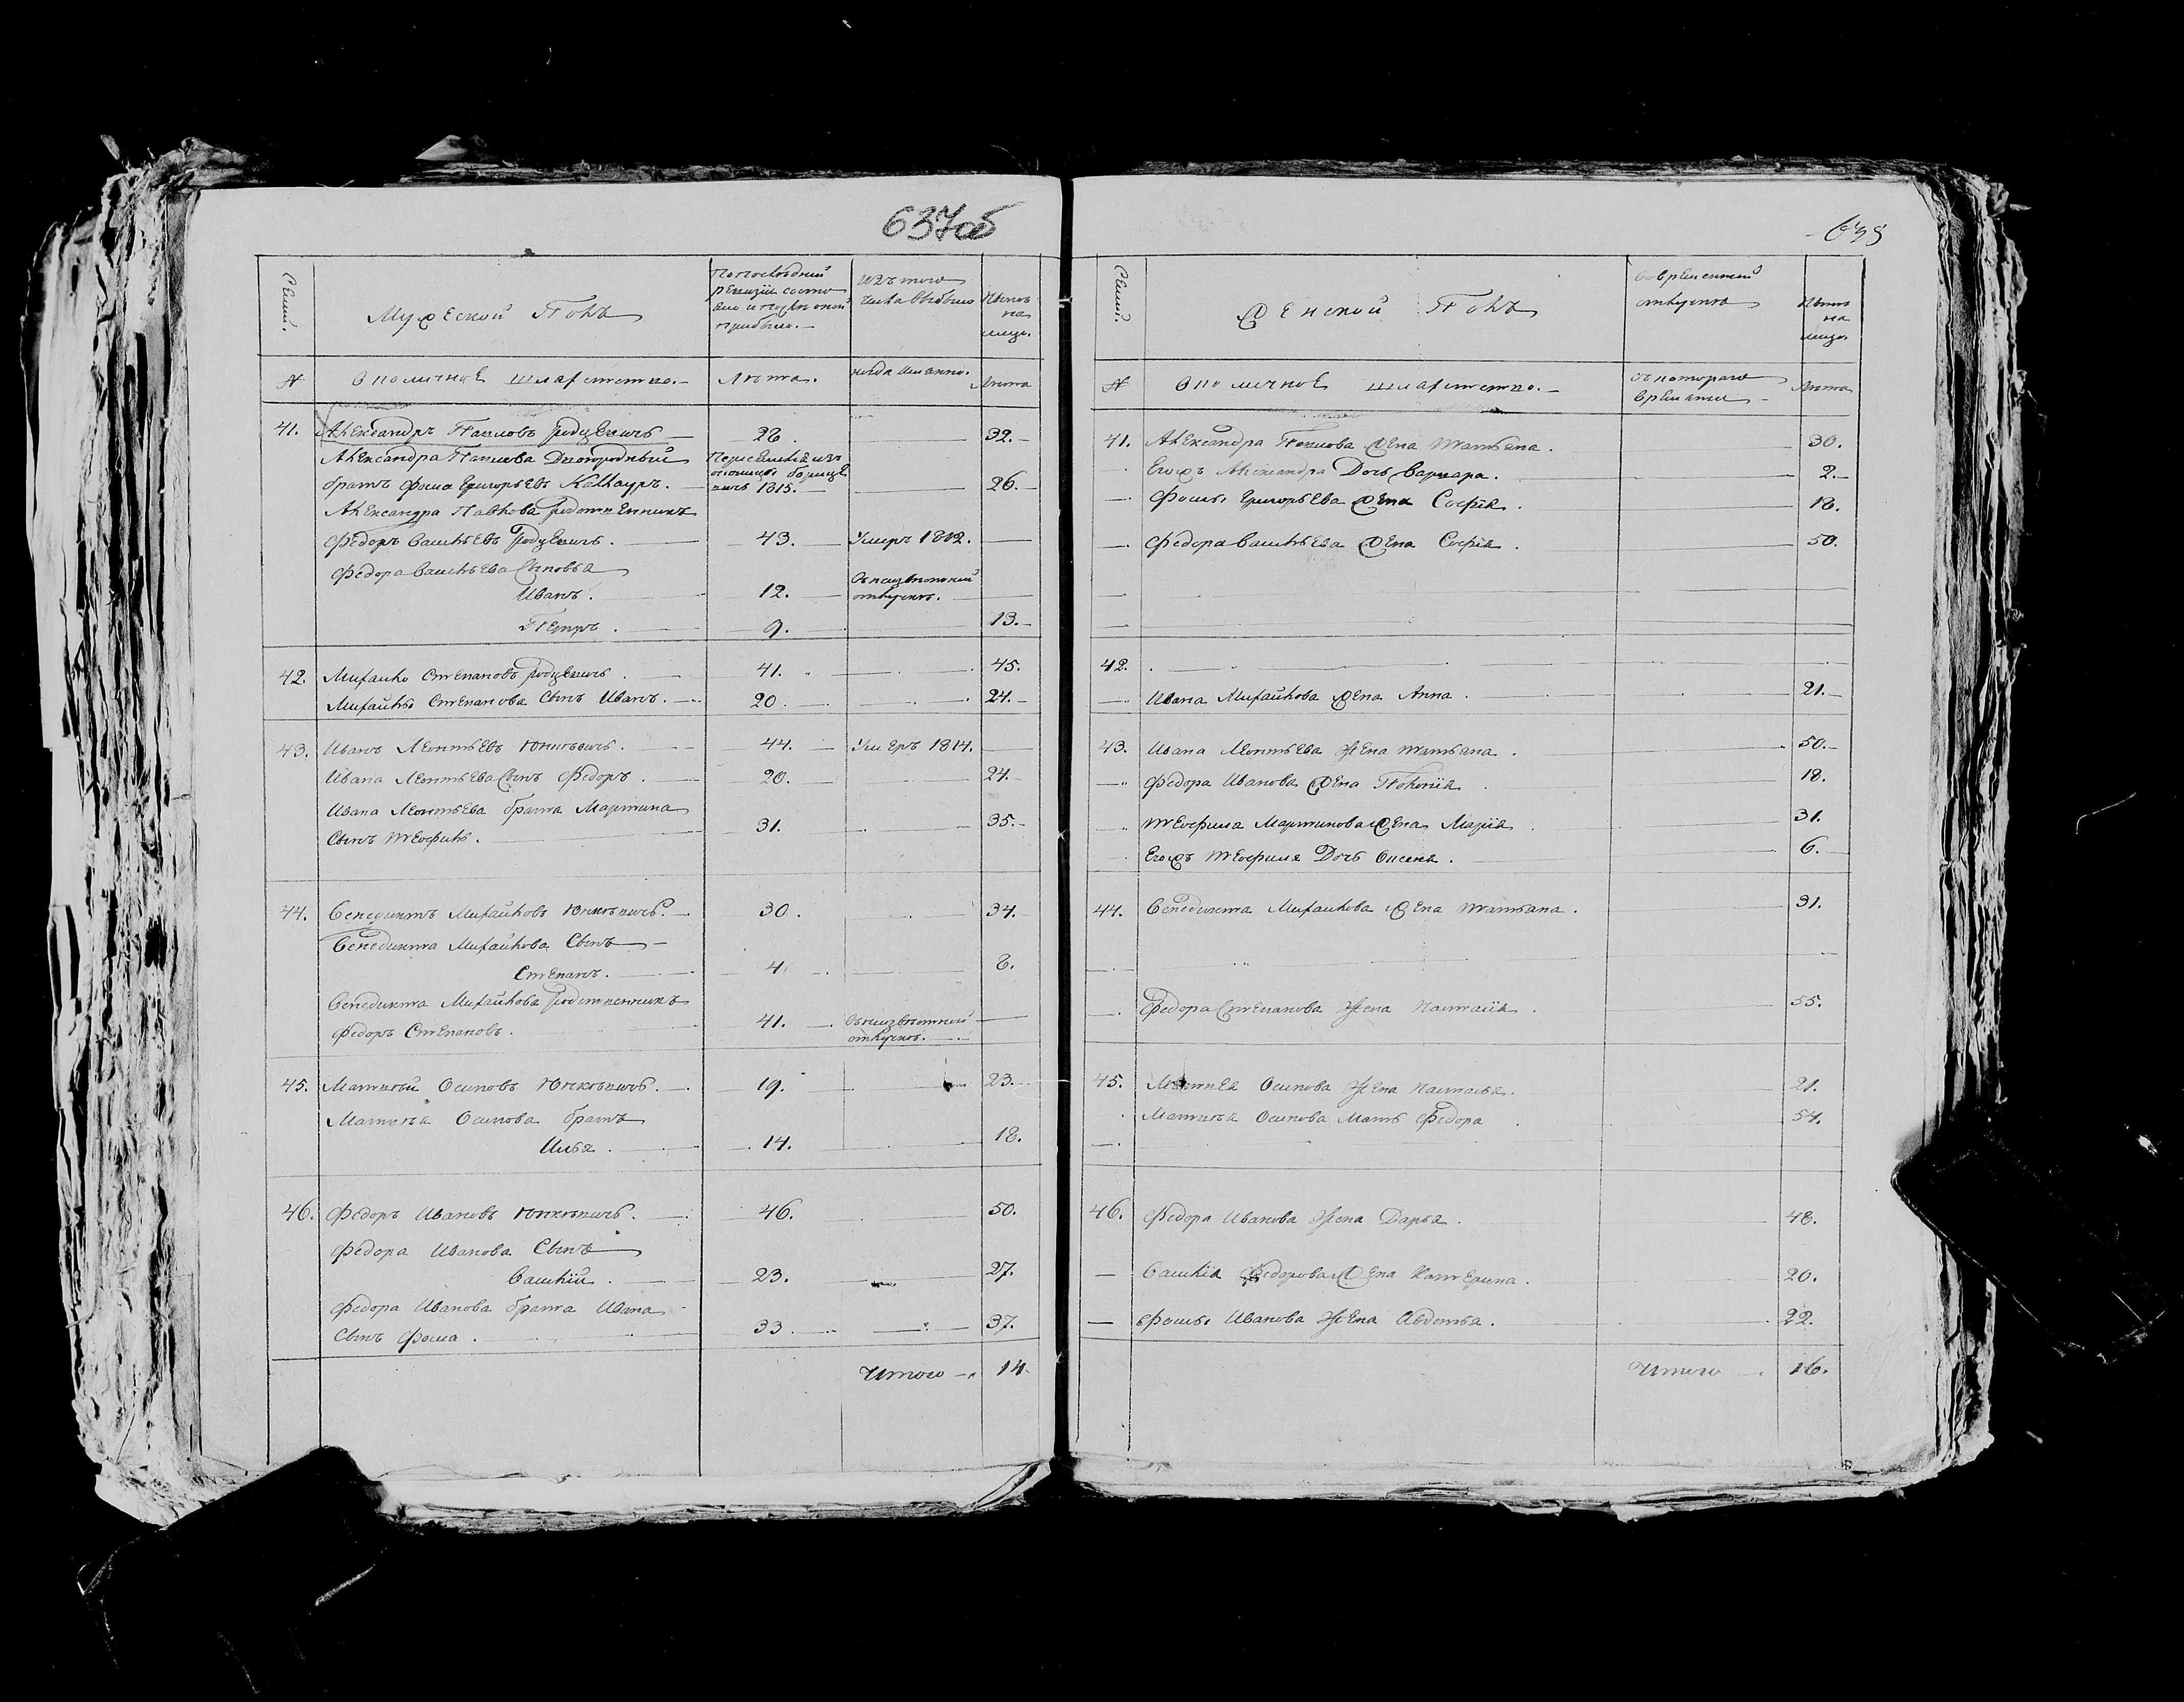 637об
Семьи.
Мужеской Полъ
По последней
ревизіи состо
яло и после оной
прибыло.
Изъ того
числа выбыло
Ныне
на
лицо.
№
Околичное шляхетство.
Лета.
когда именно.
Лета
41. Александръ Павловъ Гродзевичь 28. 32.
Александра Павлова Двоюродный
братъ Фома Григорьевъ 1815. 26.
Александра Павлова родственникъ
Федоръ Васильевъ Гродзевичь. 43. Умеръ 1812.
Федора Васильева Сыновья
Иванъ. 12. отлучке.
Петръ. 9. 13.
42. Михайло Степановъ Гродзевичь. 41. 45.
Михайлы Степанова Сынъ Иванъ. 20. 24.
43. Иванъ Леонтьевъ Юнкевичь. 44. Умеръ 1814.
Ивана Леонтьева Сынъ Федоръ. 20. 24.
Ивана Леонтьева брата Мартина
Сынъ Теофилъ. 31. 35.
44. Бенедиктъ Михайловъ Юнкевичь. 30. 34.
Бенедикта Михайлова Сынъ
Степанъ. 4 8.
Бенедикта Михайлова родственникъ
Федоръ Степановъ. 41. Въ неизвестной
отлучке.
45. Матвей Осиповъ Юнкевичь. 19. 23.
Матвея Осипова братъ
Илья. 14. 18.
46. Федоръ Ивановъ Юнкевичь. 46. 50.
Федора Иванова Сынъ
Василій. 23. 27.
Федора Иванова брата Ивана
Сынъ Фома. 33. 37.
Итого 14.
Семьи.
Женской Полъ
Во временной
отлучке
Ныне
на
лицо.
№
Околичное шляхетство.
съ котораго
времени
Лета
41. Александра Павлова жена Татьяна. 30.
Егожъ Александра Дочь Варвара. 2.
Фомы Григорьева жена Софія. 18.
Федора Васильева жена Софія. 50.
42.
Ивана Михайлова жена Анна. 21.
43. Ивана Леонтьева жена Татьяна. 50.
Федора Иванова жена Полонія 18.
Теофила Мартинова жена Марія 31.
Егожъ Теофила Дочь 6.
44. Бенедикта Михайлова жена Татьяна. 31.
Федора Степанова жена 55.
45. Матвея Осипова жена Наталья. 21.
Матвея Осипова Мать Федора 54.
46. Федора Иванова жена Дарья. 48.
Василія Федорова жена Катерина. 20.
Фомы Иванова жена Авдотья. 22.
Итого 16.